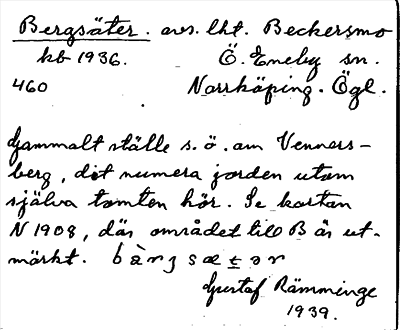 Bergsäter. avs. lht. Beckersmo
kb 1936. Ö. Eneby sn.
460 Norrköping. Ögl.
Gammalt ställe s.ö. om Venners-
berg, dit numera jorden utom
själva tomten hör. Se kartan
N 1908, där området till B är ut-
märkt. bàrʒsætər
Gustaf Rämminge
1939.